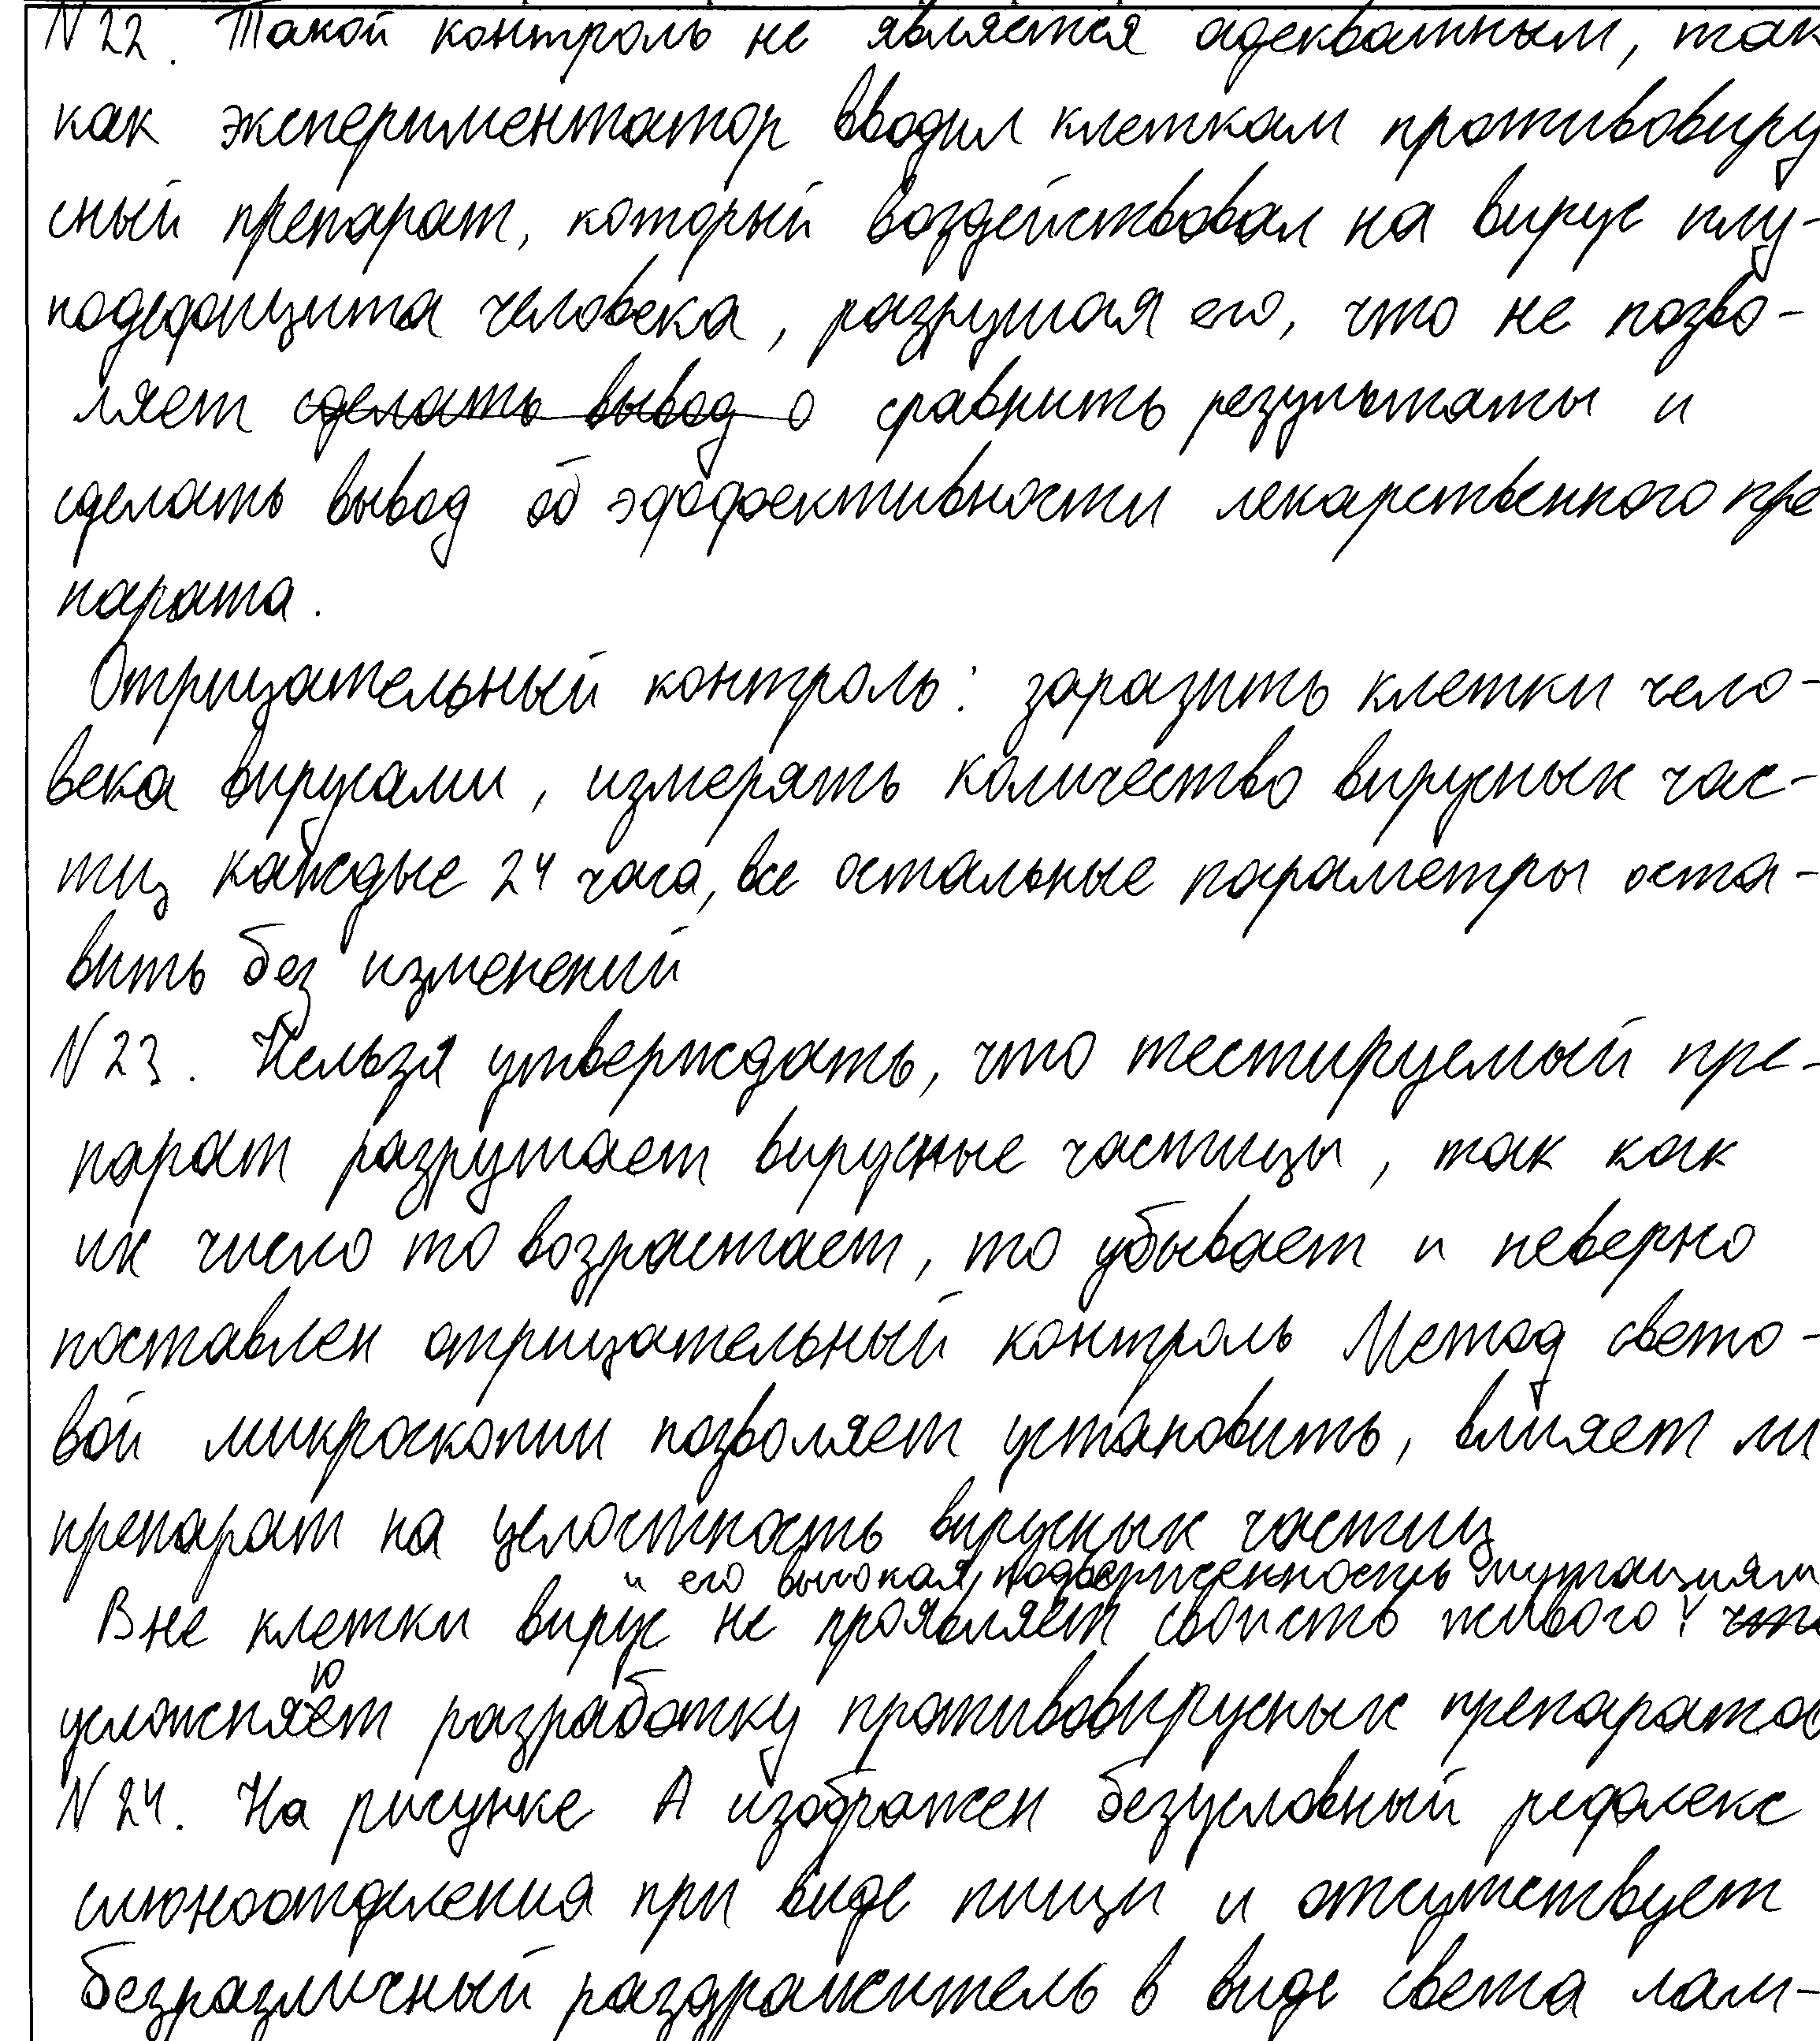 N 22. Такой контроль не является адекватным, так
как экспериментатор вводил клеткам противовиру
сный препарат, который воздействовал на вирус имму-
нодефицита человека, разрушая его, что не позво-
ляет сделать вывод о сравнить результаты и
сделать вывод об эффективности лекарственного пре
парата.
Отрицательный контроль: заразить клетки чело-
века вирусами, измерять количество вирусных час-
тиц каждые 24 часа, все остальные параметры оста-
вить без изменений
N 23. Нельзя утверждать, что тестируемый пре-
парат разрушает вирусные частицы, так как
их число то возрастает, то убывает и неверно
поставлен отрицательный контроль Метод свето-
вой микроскопии позволяет установить, влияет ли
препарат на целостность вирусных частиц
и его высокая подверженность мутациям
Вне клетки вирус не проявляет свойств живого что
усложняют разработку противовирусных препаратов
N 24. На рисунке А изображен безусловный рефлекс
слюноотделения при виде пищи и отсутствует
безразличный раздражитель в виде света лам-